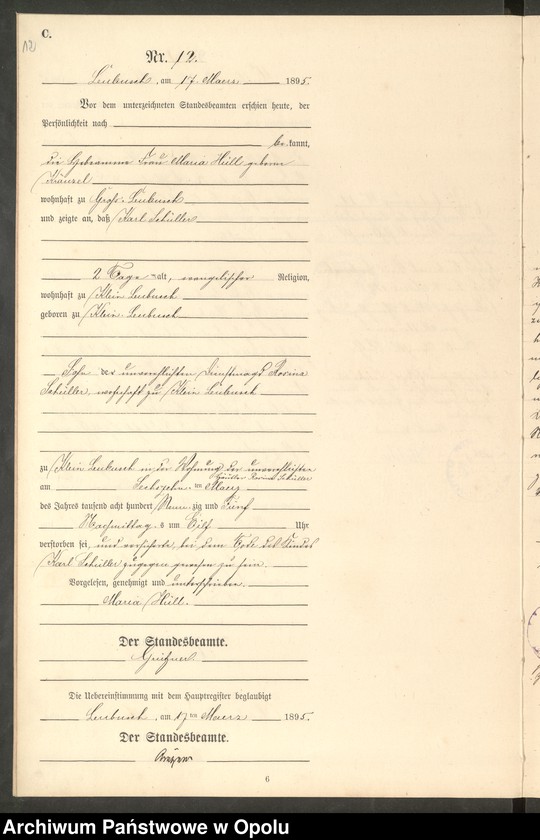 C.
Nr. 12.
Leubusch, am 17. Maerz 1895.
Vor dem unterzeichneten Standesbeamten erschien heute, der
Persönlichkeit nach
bekannt,
die Hebeamme Frau Maria Hüll geborene
wohnhaft zu Groß-Leubusch
und zeigte an, daß Karl Schüller
2 Tage alt, evangelischer Religion,
wohnhaft zu Klein Leubusch
geboren zu Klein-Leubusch
Sohn der unverehlichten Dienstmagd Rosina
Schüller, wohnhaft zu Klein Leubusch
zu Klein Leubusch in der Wohnung der unverehlichten
Rosina Schüller
am Sechszehn ten Maerz
des Jahres tausend acht hundert Neun zig und Fünf
Nachmittag s um Eilf Uhr
verstorben sei, und versicherte, bei dem Tode des Kindes
Karl Schüller zugegen gewesen zu sein.
Vorgelesen, genehmigt und unterschrieben
Maria Hüll.
Der Standesbeamte.
Die Uebereinstimmung mit dem Hauptregister beglaubigt
Leubusch, am 17 ten Maerz 1895.
Der Standesbeamte.
6
Archiwum Państwowe w Opolu